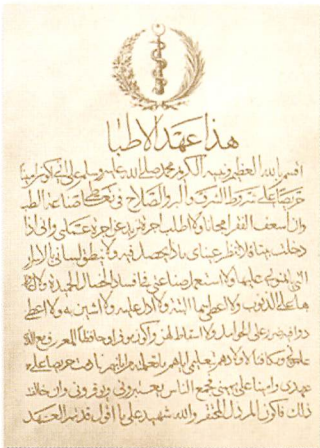 هذا عهد الاطبا
اقسم بالله العظيم ونبيه الكريم محمد صلى الله عليه وسلم على اني اكون امينا
حريصا على شروط الشرف والبر والصلاح في تعاطي صناعة الطب
وان اسعف الفقرا مجانا ولا اطلب اجرة تزيد عن اجرة عملي واني اذا
دخلت بيتا فلا تنظر عيناى ماذا يحصل فيه ولا ينطق لساني بالاسرار
التي اتمنوني عليها ولا استعمل صناعتي في افساد الخصال الحميدة ولا
بها على الذنوب ولا اعطي سما البتة ولا ادل عليه ولا اشير به ولا اعطي
دوا فيه ضرر على الحوامل ولا اسقاط لهن واكون موفرا وحافظا للمعروف مع
علموني ومكافئا لاولادهم بتعليمي اياهم ما تعلمته من ابائهم فما دمت حريصا على
عهدي وامينا على يميني فجميع الناس يعتبروني ويوقروني وان خالفت
ذلك فاكون المرذل المحتقر والله شهيد على ما اقول قد تم العهد